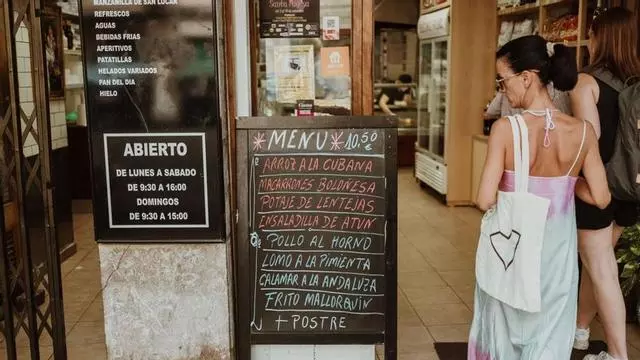 MANZANILLA DE SAN LUCAR
REFRESCOS
AGUAS
BEBIDAS FRIAS
APERITIVOS
PATATILLAS
HELADOS VARIADOS
PAN DEL DIA
HIELO
ABIERTO
DE LUNES A SABADO
DE 9:30 A 16:00
DOMINGOS
DE 9:30 A 15:00
MENU 10,50
ARROZ A LA CUBANA
MACARRONES BOLONESA
POTAJE DE LENTEJAS
ENSALADILLA DE ATUN
POLLO AL HORNO
LOMO A LA PIMIENTA
CALAMAR A LA ANDALUZA
FRITO MALLORQUIN
+ POSTRE